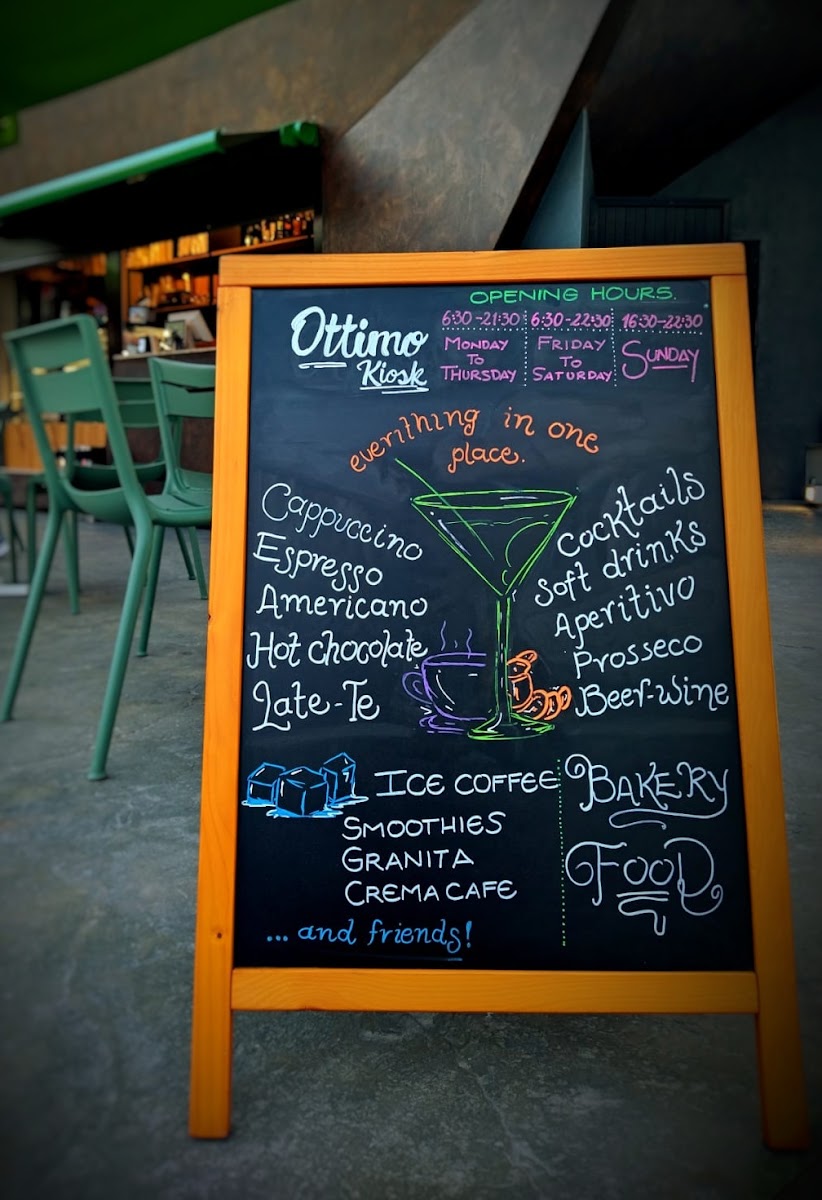 OPENING HOURS.
Ottimo
Kiosk
6:30-21:30
MONDAY
TO
THURSDAY
6:30-22:30
FRIDAY
TO
SATURDAY
16:30-22:30
SUNDAY
everithing in one
place.
Cappuccino
Espresso
Americano
Hot chocolate
Late-Te
Cocktails
Soft drinks
Aperitivo
Prosseco
Beer-Wine
ICE COFFEE
SMOOTHIES
GRANITA
CREMA CAFE
... and friends!
BAKERY
FOOD